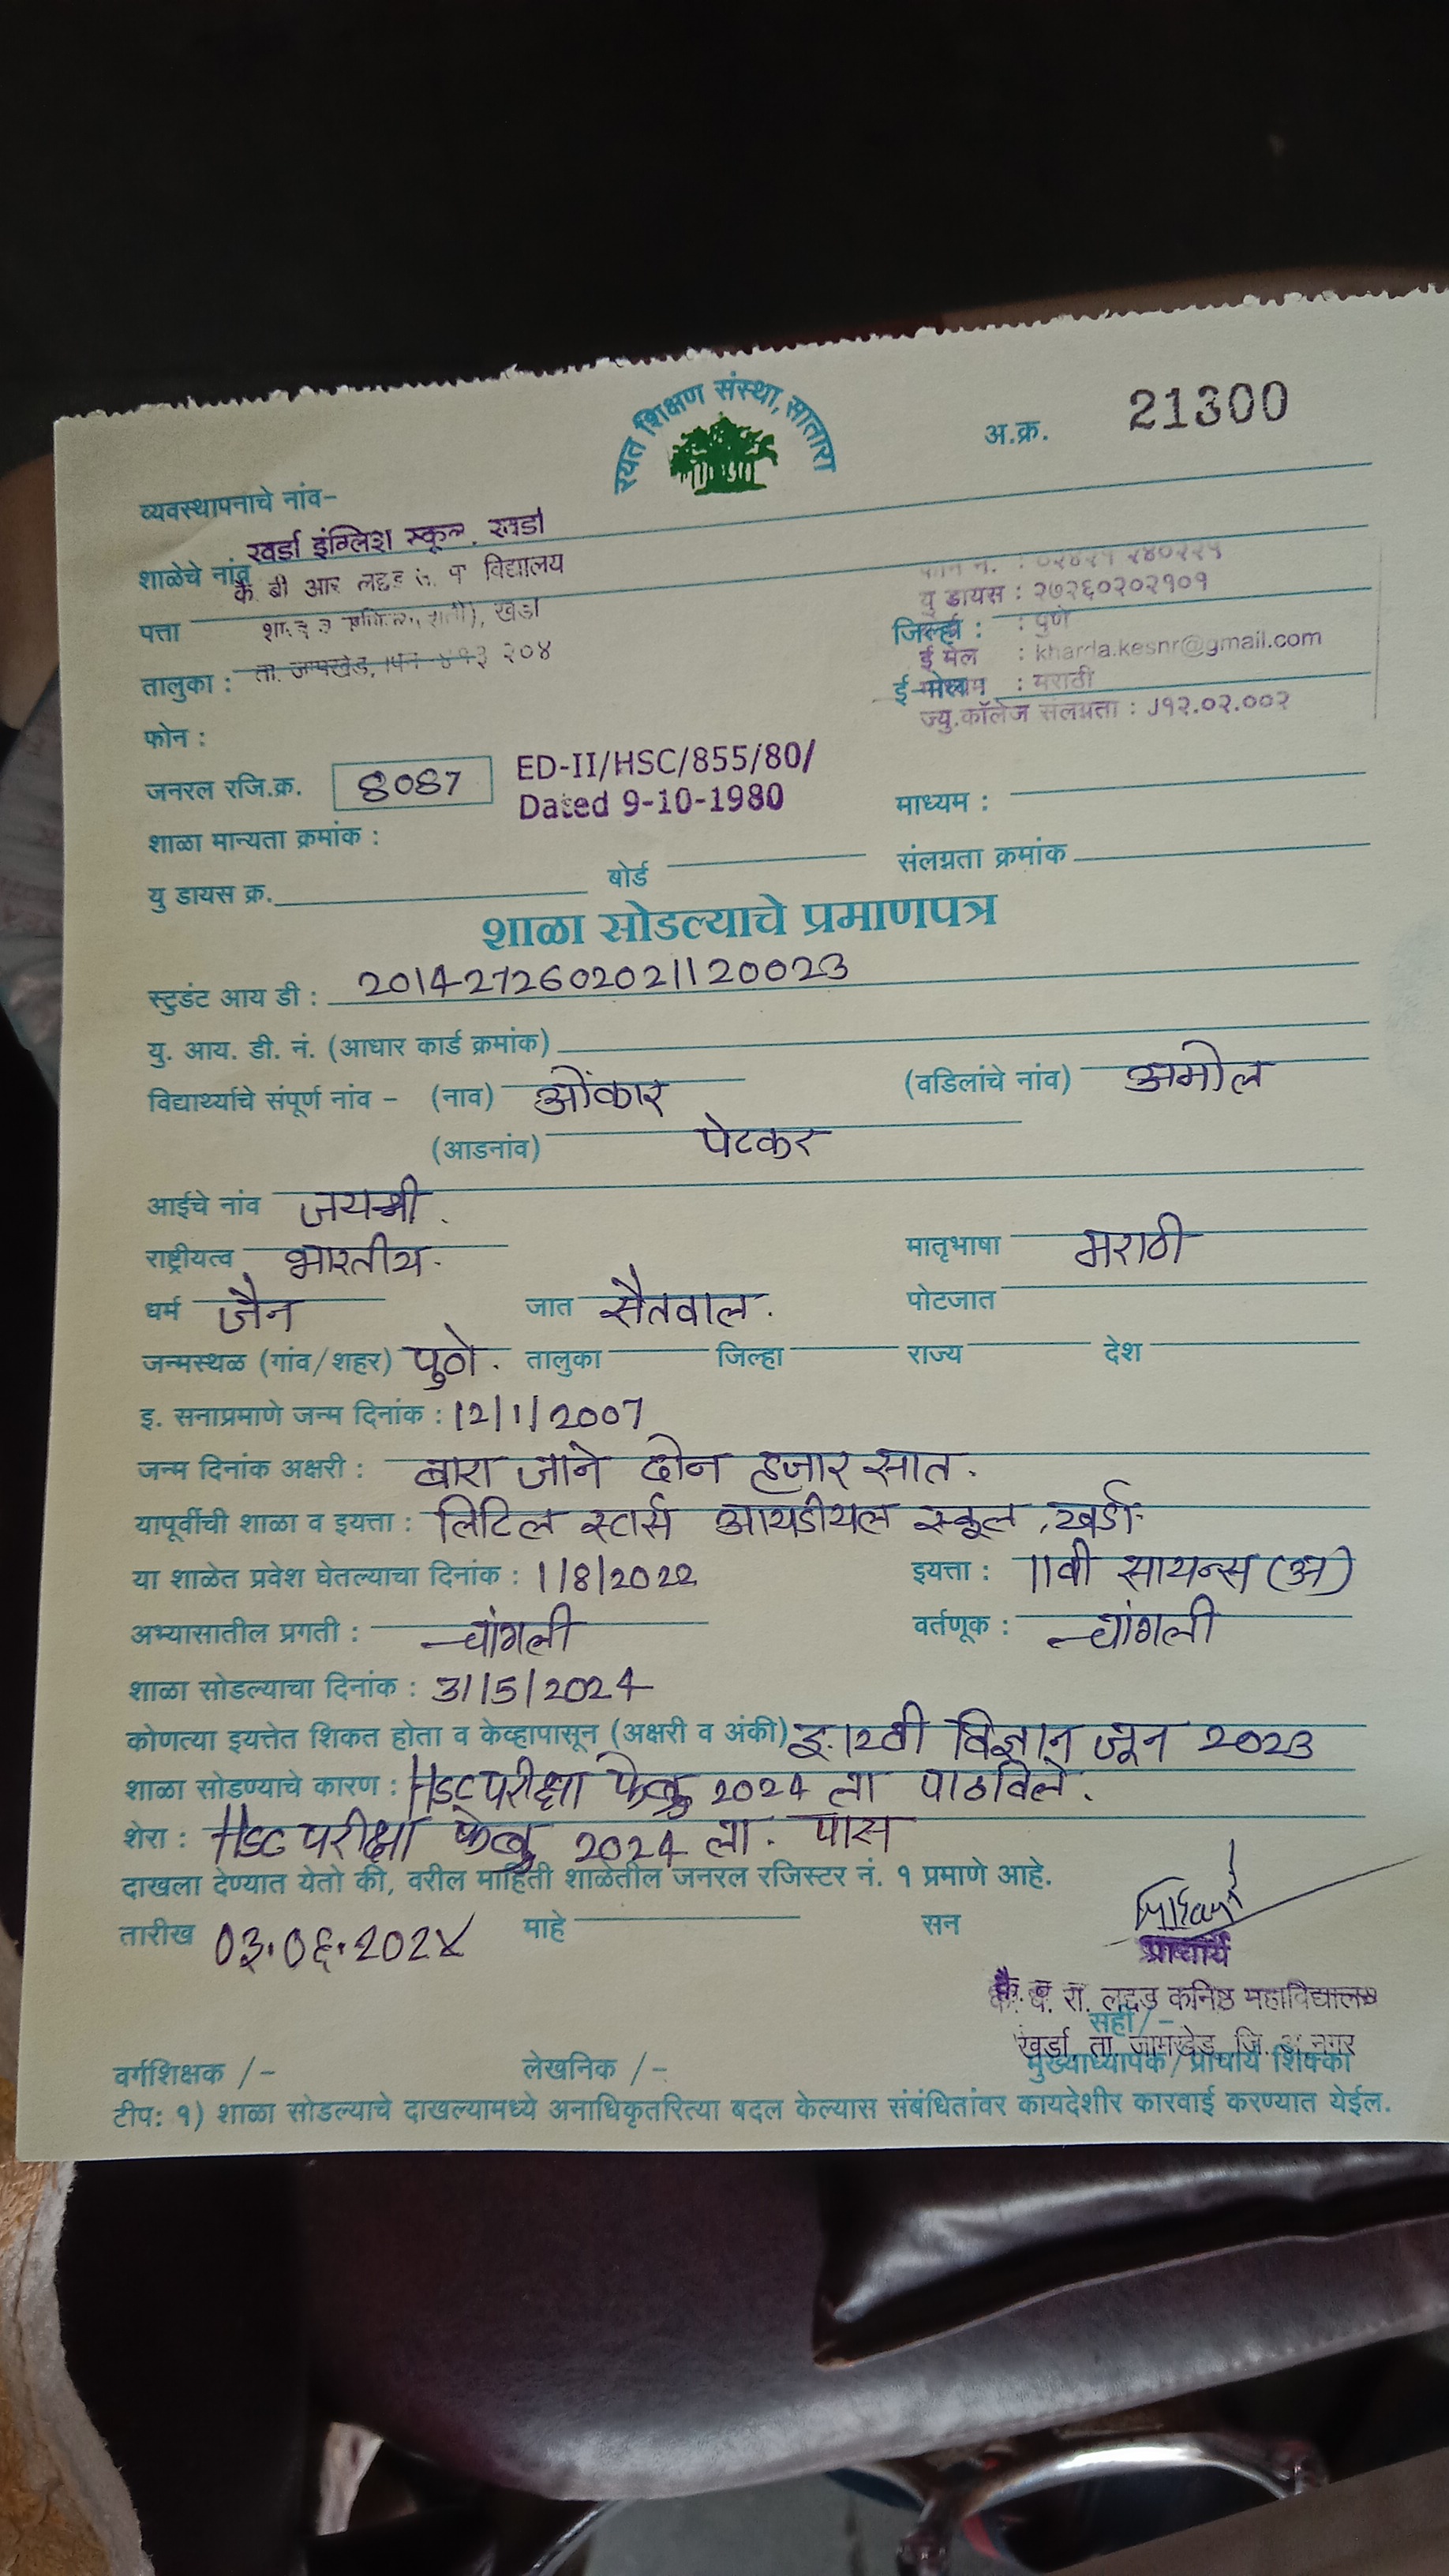 रयत शिक्षण संस्था, सातारा
अ.क्र. 21300
व्यवस्थापनाचे नांव-
खर्डा इंग्लिश स्कूल, खर्डा
शाळेचे नांव
कै. बी आर लद्दड विद्यालय
फोन नं. : ०२४२१ २४०२२५
यु डायस : २७२६०२०२१०१
पत्ता खर्डा
जिल्हा : : पुणे
ता. जामखेड, पिन ४१३ २०४
ई मेल : kharda.kesnr@gmail.com
तालुका :
ई-मेल : माध्यम : मराठी
ज्यु.कॉलेज संलग्नता : J१२.०२.००२
फोन :
जनरल रजि.क्र. 8087 ED-II/HSC/855/80/
Dated 9-10-1980
माध्यम :
शाळा मान्यता क्रमांक :
यु डायस क्र. बोर्ड संलग्नता क्रमांक
शाळा सोडल्याचे प्रमाणपत्र
स्टुडंट आय डी : 2014272602021120023
यु. आय. डी. नं. (आधार कार्ड क्रमांक)
विद्यार्थ्याचे संपूर्ण नांव - (नाव) ओंकार (वडिलांचे नांव) अमोल
(आडनांव) पेटकर
आईचे नांव जयश्री.
राष्ट्रीयत्व भारतीय. मातृभाषा मराठी
धर्म जैन जात सैतवाल. पोटजात
जन्मस्थळ (गांव/शहर) पुणे. तालुका जिल्हा राज्य देश
इ. सनाप्रमाणे जन्म दिनांक : 12/1/2007
जन्म दिनांक अक्षरी : बारा जाने दोन हजार सात.
यापूर्वीची शाळा व इयत्ता : लिटिल स्टार्स आयडीयल स्कूल, खर्डा.
या शाळेत प्रवेश घेतल्याचा दिनांक : 1/8/2022 इयत्ता : 11वी सायन्स (अ)
अभ्यासातील प्रगती : चांगली वर्तणूक : चांगली
शाळा सोडल्याचा दिनांक : 31/5/2024
कोणत्या इयत्तेत शिकत होता व केव्हापासून (अक्षरी व अंकी) इ.12वी विज्ञान जून 2023
शाळा सोडण्याचे कारण : HSC परीक्षा फेब्रु 2024 ला पाठविले.
शेरा : HSC परीक्षा फेब्रु 2024 ला. पास
दाखला देण्यात येतो की, वरील माहिती शाळेतील जनरल रजिस्टर नं. १ प्रमाणे आहे.
तारीख 03.06.2024 माहे सन
प्राचार्य
कै. ब. रा. लद्दड कनिष्ठ महाविद्यालय
सही/-
खर्डा, ता. जामखेड, जि. अ.नगर
वर्गशिक्षक /- लेखनिक /- मुख्याध्यापक/प्राचार्य शिक्का
टीप: १) शाळा सोडल्याचे दाखल्यामध्ये अनाधिकृतरित्या बदल केल्यास संबंधितांवर कायदेशीर कारवाई करण्यात येईल.